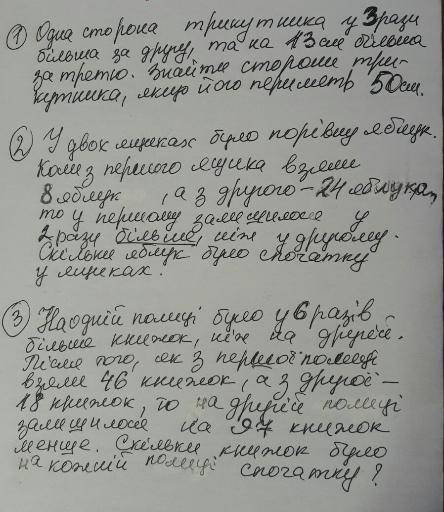 ① Одна сторона трикутника у 3 рази
більша за другу, та на 13 см більша
за третю. Знайти сторони три-
кутника, якщо його периметр 50 см.
② У двох ящиках було порівну яблук.
Коли з першого ящика взяли
8 яблук, а з другого – 24 яблука,
то у першому залишилося у
2 рази більше, ніж у другому.
Скільки яблук було спочатку
у ящиках.
③ На одній полиці було у 6 разів
більше книжок, ніж на другій.
Після того, як з першої полиці
взяли 46 книжок, а з другої –
18 книжок, то на другій полиці
залишилося на 97 книжок
менше. Скільки книжок було
на кожній полиці спочатку?